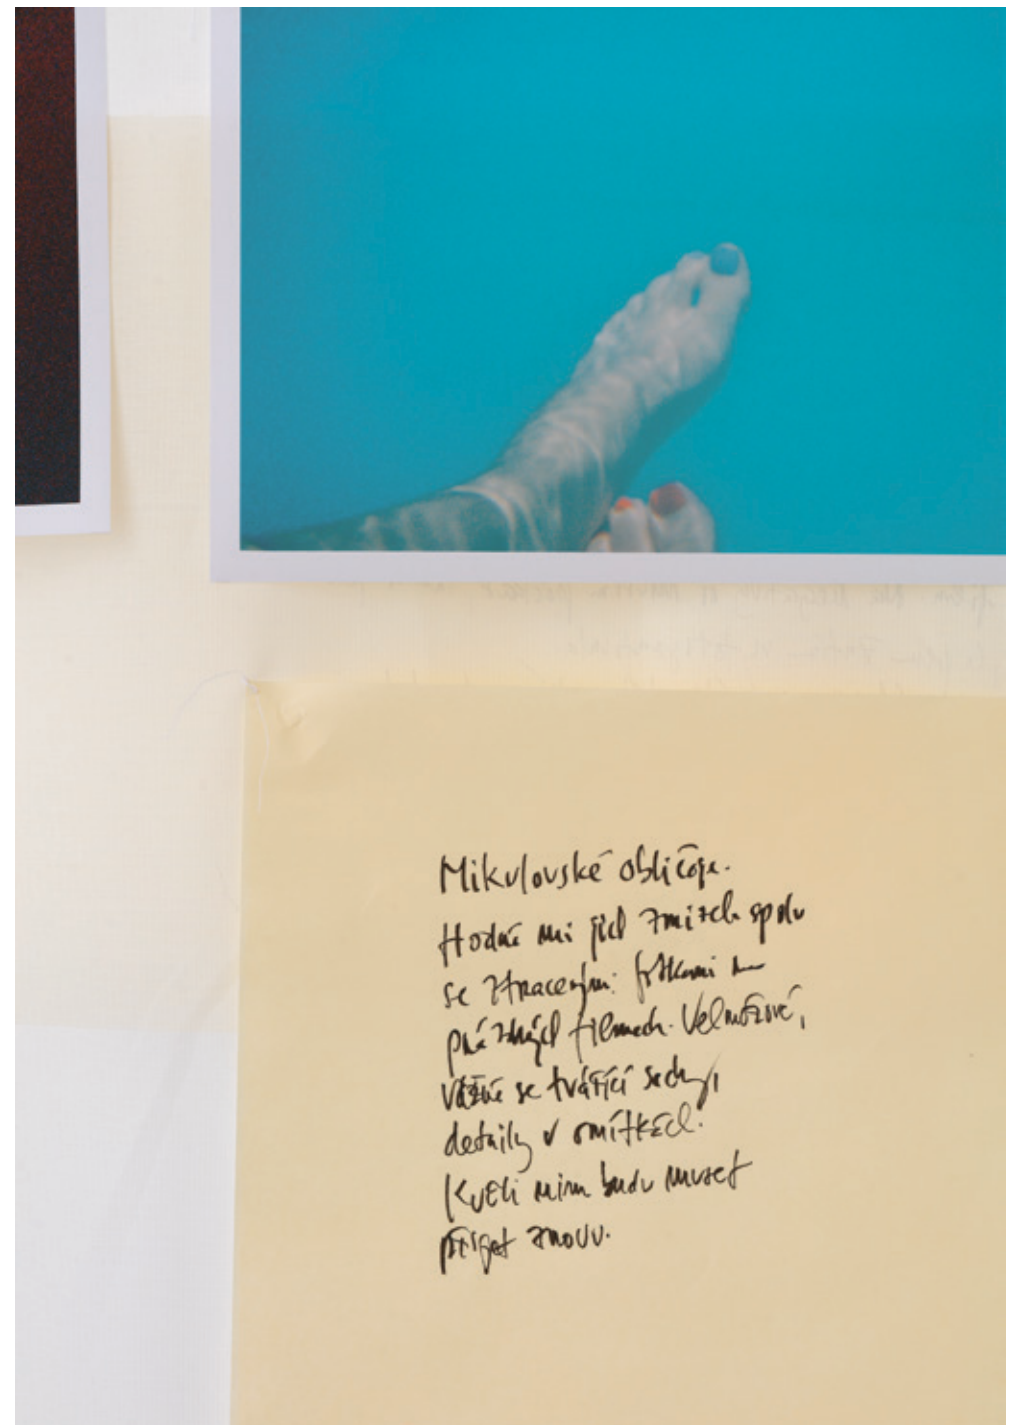 Mikulovské obličeje.
Hodně mi jich zmizelo spolu
se ztracenými fotkami na
prázdných filmech. Velmožové,
vážně se tvářící sochy,
detaily v omítkách.
Kvůli nim budu muset
přijet znovu.